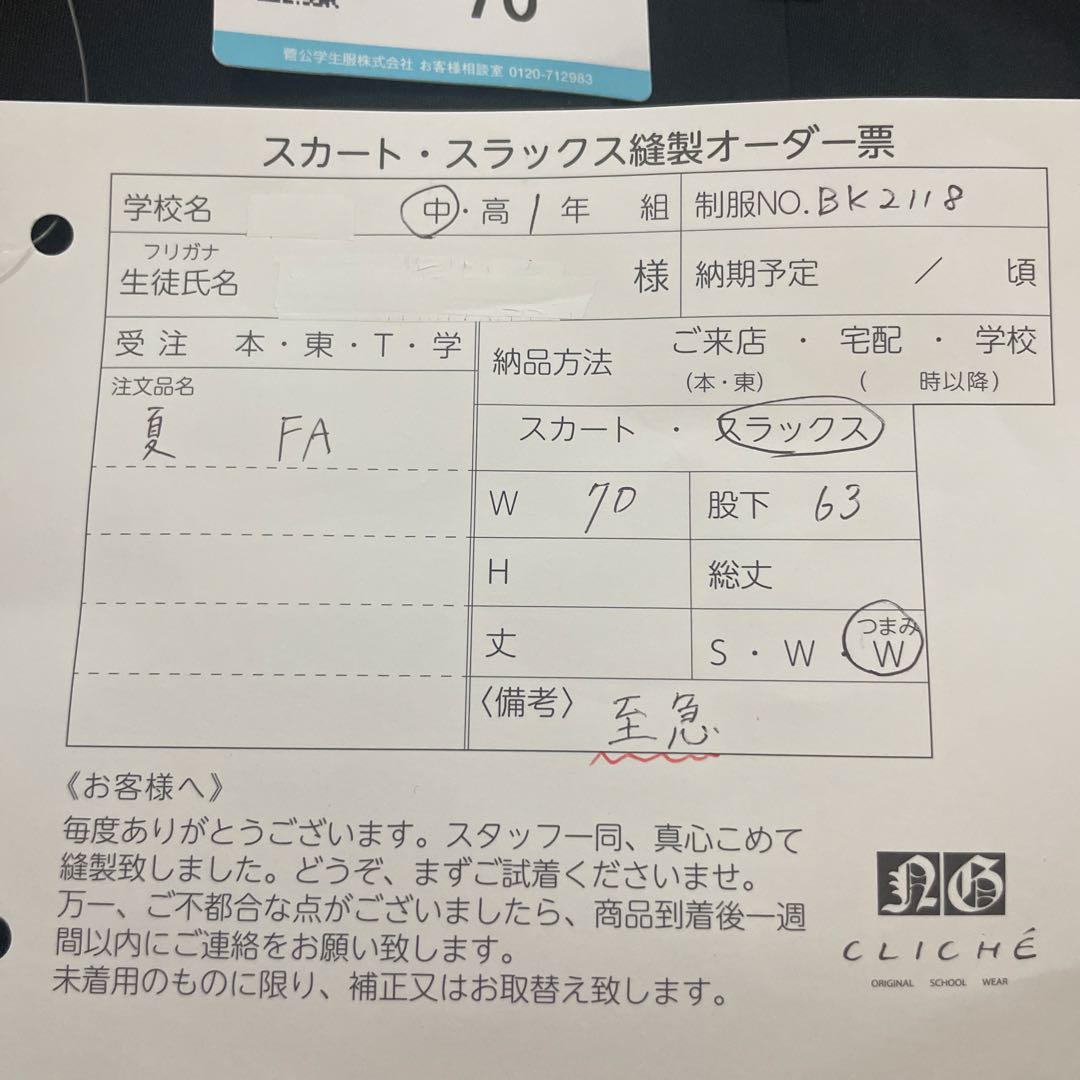 70
菅公学生服株式会社 お客様相談室 0120-712983
スカート・スラックス縫製オーダー票
学校名 中・高 1 年 組 制服NO. BK2118
フリガナ
生徒氏名 様 納期予定 / 頃
受注 本・東・T・学
納品方法 ご来店 ・ 宅配 ・ 学校
(本・東) ( 時以降)
注文品名
夏 FA
スカート ・ スラックス
W 70 股下 63
H 総丈
丈 S・W・つまみW
〈備考〉 至急
《お客様へ》
毎度ありがとうございます。スタッフ一同、真心こめて
縫製致しました。どうぞ、まずご試着くださいませ。
万一、ご不都合な点がございましたら、商品到着後一週
間以内にご連絡をお願い致します。
未着用のものに限り、補正又はお取替え致します。
NG
CLICHÉ
ORIGINAL SCHOOL WEAR